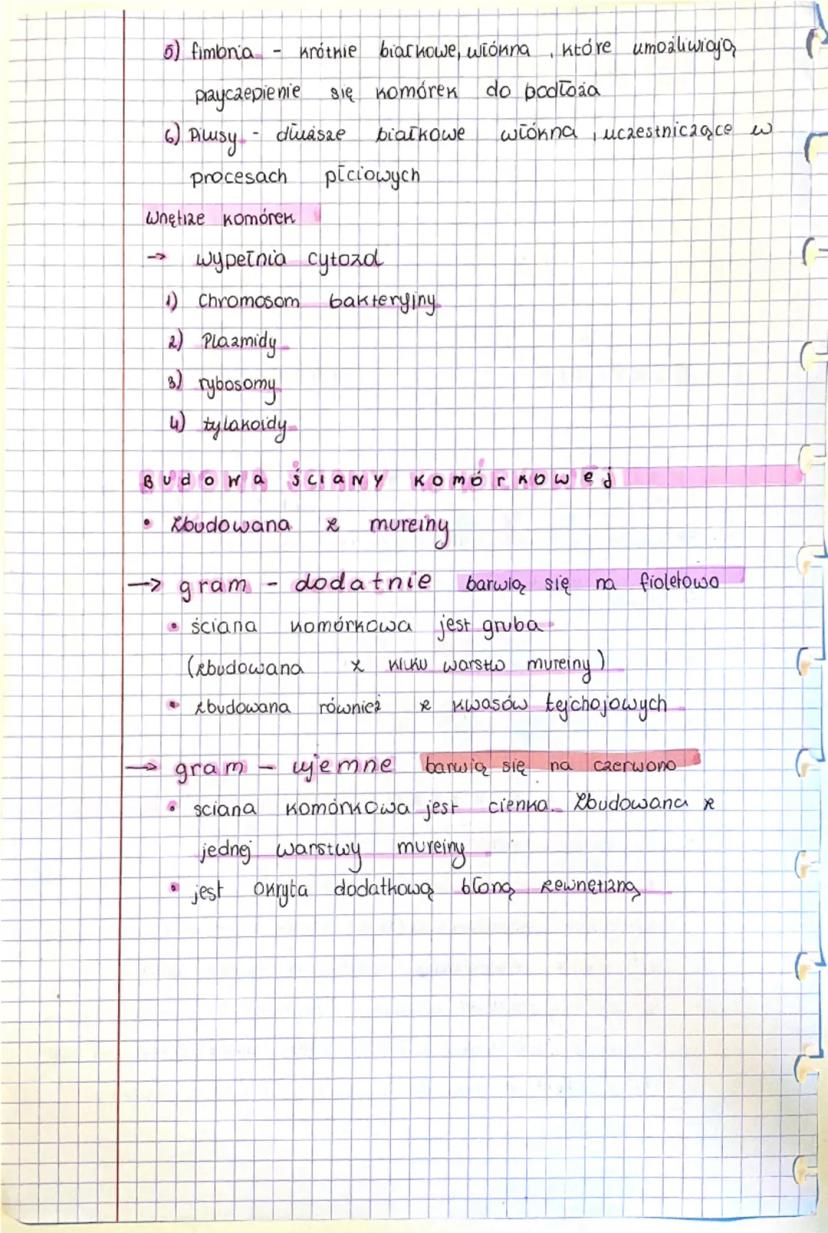 5) fimbria - krótkie białkowe, włókna, które umożliwiają
przyczepienie się komórek do podłoża
6) Pilusy - dłuższe białkowe włókna, uczestniczące w
procesach płciowych
Wnętrze komórek
→ wypełnia cytozol
1) Chromosom bakteryjny
2) Plazmidy
3) rybosomy
4) tylakoidy
Budowa ściany komórkowej
• Zbudowana z mureiny
→ gram - dodatnie barwią się na fioletowo
• ściana komórkowa jest gruba
(zbudowana z kilku warstw mureiny)
• zbudowana również z kwasów tejchojowych
→ gram - ujemne barwią się na czerwono
• sciana komórkowa jest cienka. Zbudowana z
jednej warstwy mureiny
• jest okryta dodatkową błoną zewnętrzną